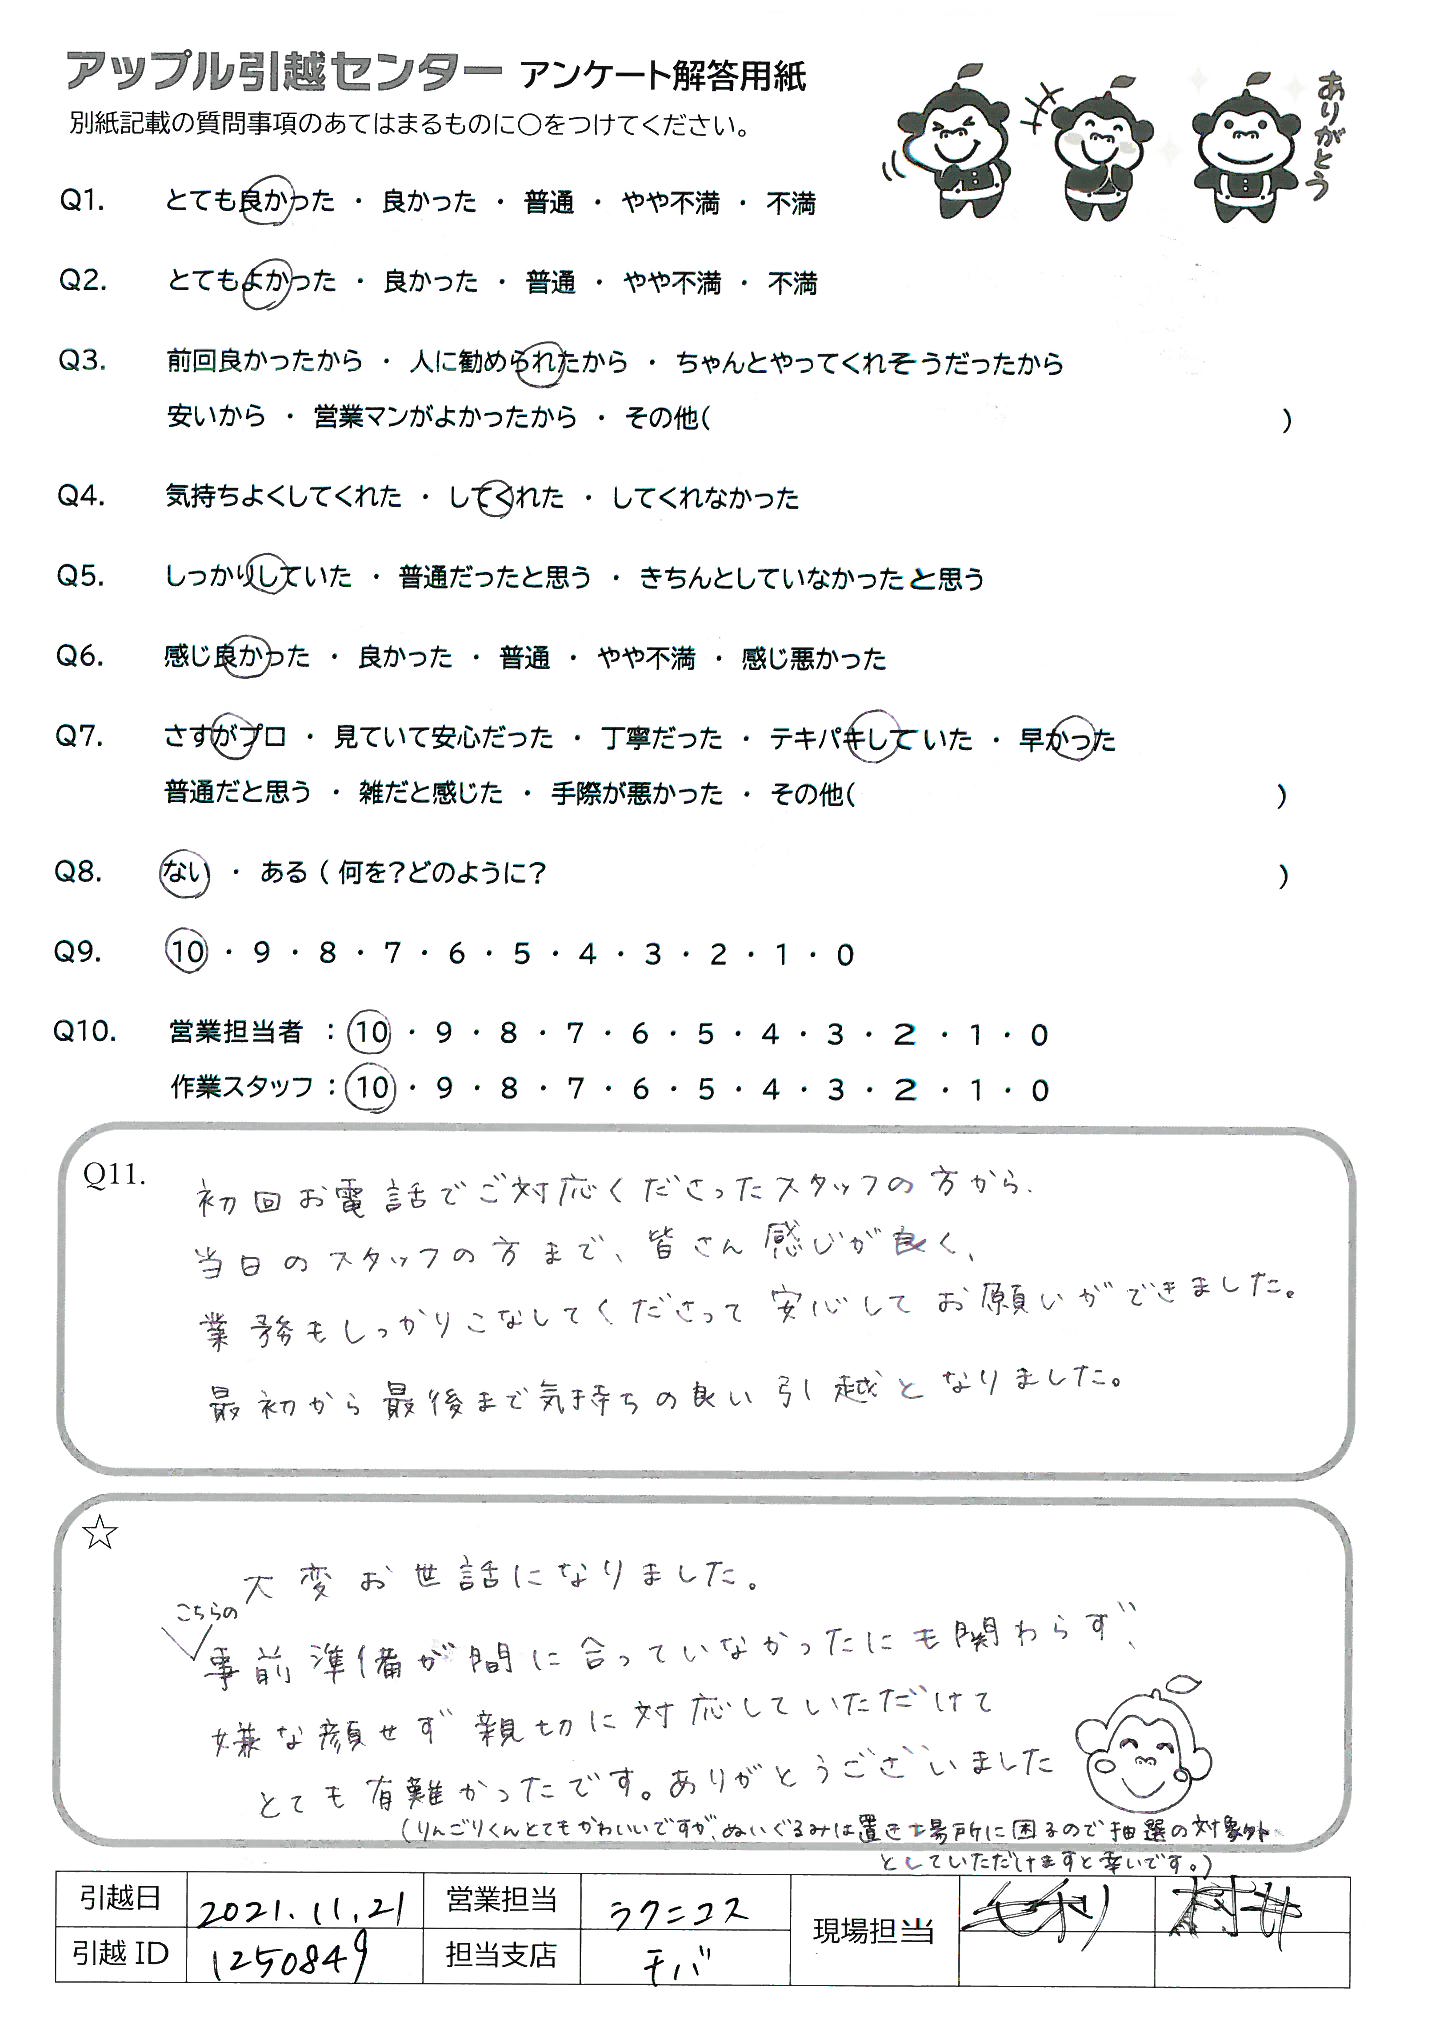 アップル引越センター アンケート解答用紙
別紙記載の質問事項のあてはまるものに○をつけてください。
ありがとう
Q1. とても良かった ・ 良かった ・ 普通 ・ やや不満 ・ 不満
Q2. とてもよかった ・ 良かった ・ 普通 ・ やや不満 ・ 不満
Q3. 前回良かったから ・ 人に勧められたから ・ ちゃんとやってくれそうだったから
安いから ・ 営業マンがよかったから ・ その他( )
Q4. 気持ちよくしてくれた ・ してくれた ・ してくれなかった
Q5. しっかりしていた ・ 普通だったと思う ・ きちんとしていなかったと思う
Q6. 感じ良かった ・ 良かった ・ 普通 ・ やや不満 ・ 感じ悪かった
Q7. さすがプロ ・ 見ていて安心だった ・ 丁寧だった ・ テキパキしていた ・ 早かった
普通だと思う ・ 雑だと感じた ・ 手際が悪かった ・ その他( )
Q8. ない ・ ある ( 何を?どのように? )
Q9. 10 ・ 9 ・ 8 ・ 7 ・ 6 ・ 5 ・ 4 ・ 3 ・ 2 ・ 1 ・ 0
Q10. 営業担当者 : 10 ・ 9 ・ 8 ・ 7 ・ 6 ・ 5 ・ 4 ・ 3 ・ 2 ・ 1 ・ 0
作業スタッフ : 10 ・ 9 ・ 8 ・ 7 ・ 6 ・ 5 ・ 4 ・ 3 ・ 2 ・ 1 ・ 0
Q11. 初回お電話でご対応くださったスタッフの方から、
当日のスタッフの方まで、皆さん感じが良く、
業務もしっかりこなしてくださって安心してお願いができました。
最初から最後まで気持ちの良い引越となりました。
☆
大変お世話になりました。
こちらの
事前準備が間に合っていなかったにも関わらず、
嫌な顔せず親切に対応していただけて
とても有難かったです。ありがとうございました
(りんごりくんとてもかわいいですが、ぬいぐるみは置き場所に困るので抽選の対象外
としていただけますと幸いです。)
引越日 2021.11.21 営業担当 ラクニコス 現場担当 村井
引越ID 1250849 担当支店 モバ